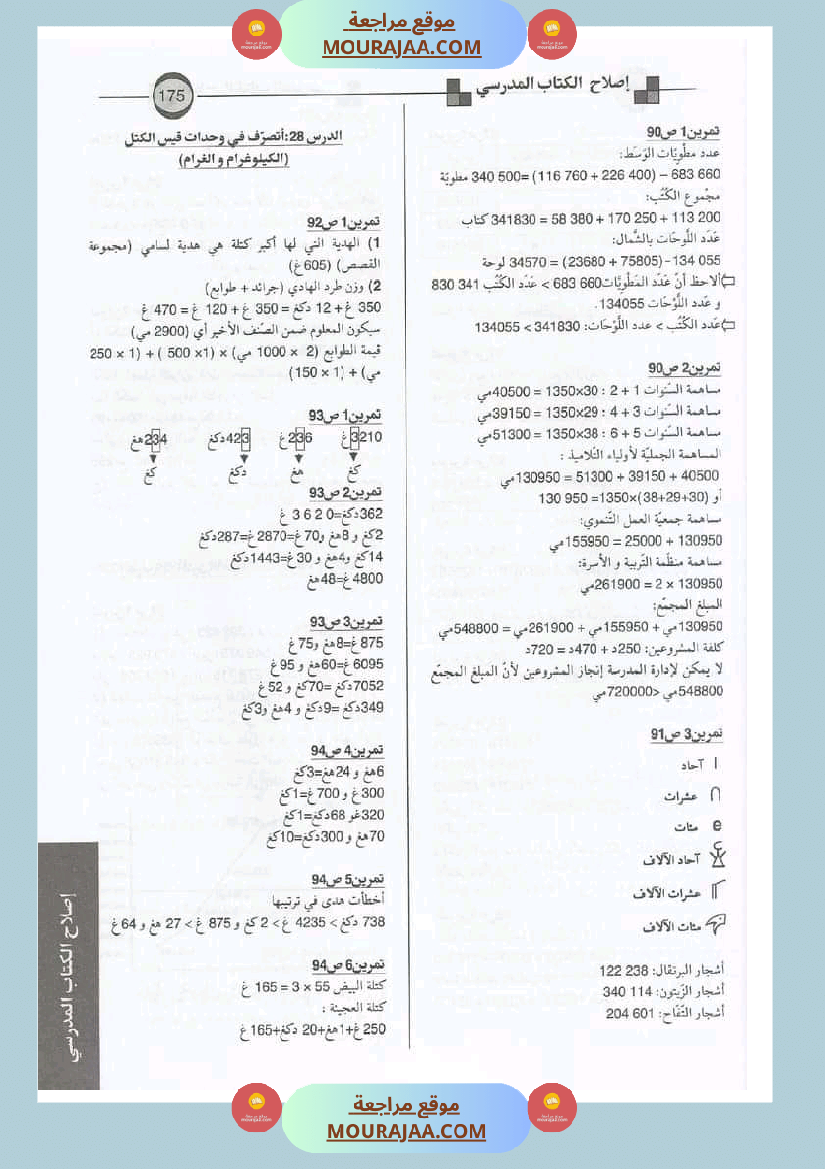 موقع مراجعة
MOURAJAA.COM
إصلاح الكتاب المدرسي
175
تمرين1 ص90
عدد مطويّات الوَسَط:
683 660 – (400 226 + 760 116) =500 340 مطويّة
مجْموع الكُتُب:
113 200 + 170 250 + 58 380 = 341830 كتاب
عَدَد اللّوحَات بالشّمال:
134 055- (75805 + 23680) = 34570 لوحة
ألاحظ أنّ عَدَد المَطْويّات660 683 > عَدَد الكُتُب 341 830
و عَدد اللّوْحَات 134055.
عَدَد الكُتُب > عدد اللَّوْحَات: 341830 > 134055
تمرين2 ص90
مساهمة السّنوات 1 + 2 : 30×1350 = 40500مي
مساهمة السّنوات 3 + 4 : 29×1350 = 39150مي
مساهمة السّنوات 5 + 6 : 38×1350 = 51300مي
المساهمة الجمليّة لأولياء التّلاميذ :
40500 + 39150 + 51300 = 130950مي
أو (30+29+38)×1350= 950 130
مساهمة جمعيّة العمل التّنموي:
130950 + 25000 = 155950مي
مساهمة منظّمة التّربية و الأسرة:
130950 × 2 = 261900مي
المبلغ المجمّع:
130950مي + 155950مي + 261900مي = 548800مي
كلفة المشروعين: 250د + 470د = 720د
لا يمكن لإدارة المدرسة إنجاز المشروعين لأنّ المبلغ المجمّع
548800مي <720000مي
تمرين3 ص91
آحاد
عشرات
مئات
آحاد الآلاف
عشرات الآلاف
مئات الآلاف
أشجار البرتقال: 238 122
أشجار الزّيتون: 114 340
أشجار التّفّاح: 601 204
الدرس 28:أتصرّف في وحدات قيس الكتل
(الكيلوغرام و الغرام)
تمرين1 ص92
1) الهدية التي لها أكبر كتلة هي هدية لسامي (مجموعة
القصص) (605 غ)
2) وزن طرد الهادي (جرائد + طوابع)
350 غ+ 12 دكغ = 350 غ + 120 غ = 470 غ
سيكون المعلوم ضمن الصّنف الأخير أي (2900 مي)
قيمة الطوابع (2 × 1000 مي) × (1× 500 ) + (1 × 250
مي) + (1 × 150)
تمرين1 ص93
3210غ 236غ 423دكغ 234هغ
كغ هغ دكغ كغ
تمرين2 ص93
362دكغ=0 2 6 3 غ
2كغ و 8هغ و70غ=2870 غ=287دكغ
14كغ و4هغ و 30غ=1443دكغ
4800غ=48هغ
تمرين3 ص93
875غ=8هغ و75غ
6095غ=60هغ و 95غ
7052دكغ =70كغ و 52غ
349دكغ =9دكغ و 4هغ و3كغ
تمرين4 ص94
6هغ و 24هغ=3كغ
300غ و 700غ=1كغ
320غو 68دكغ=1كغ
70هغ و 300دكغ=10كغ
تمرين5 ص94
أخطأت هدى في ترتيبها
738 دكغ > 4235 غ> 2 كغ و 875 غ> 27 هغ و 64 غ
تمرين6 ص94
كتلة البيض 55 × 3 = 165 غ
كتلة العجينة :
250غ+1هغ+20 دكغ+165غ
إصلاح الكتاب المدرسي
موقع مراجعة
MOURAJAA.COM